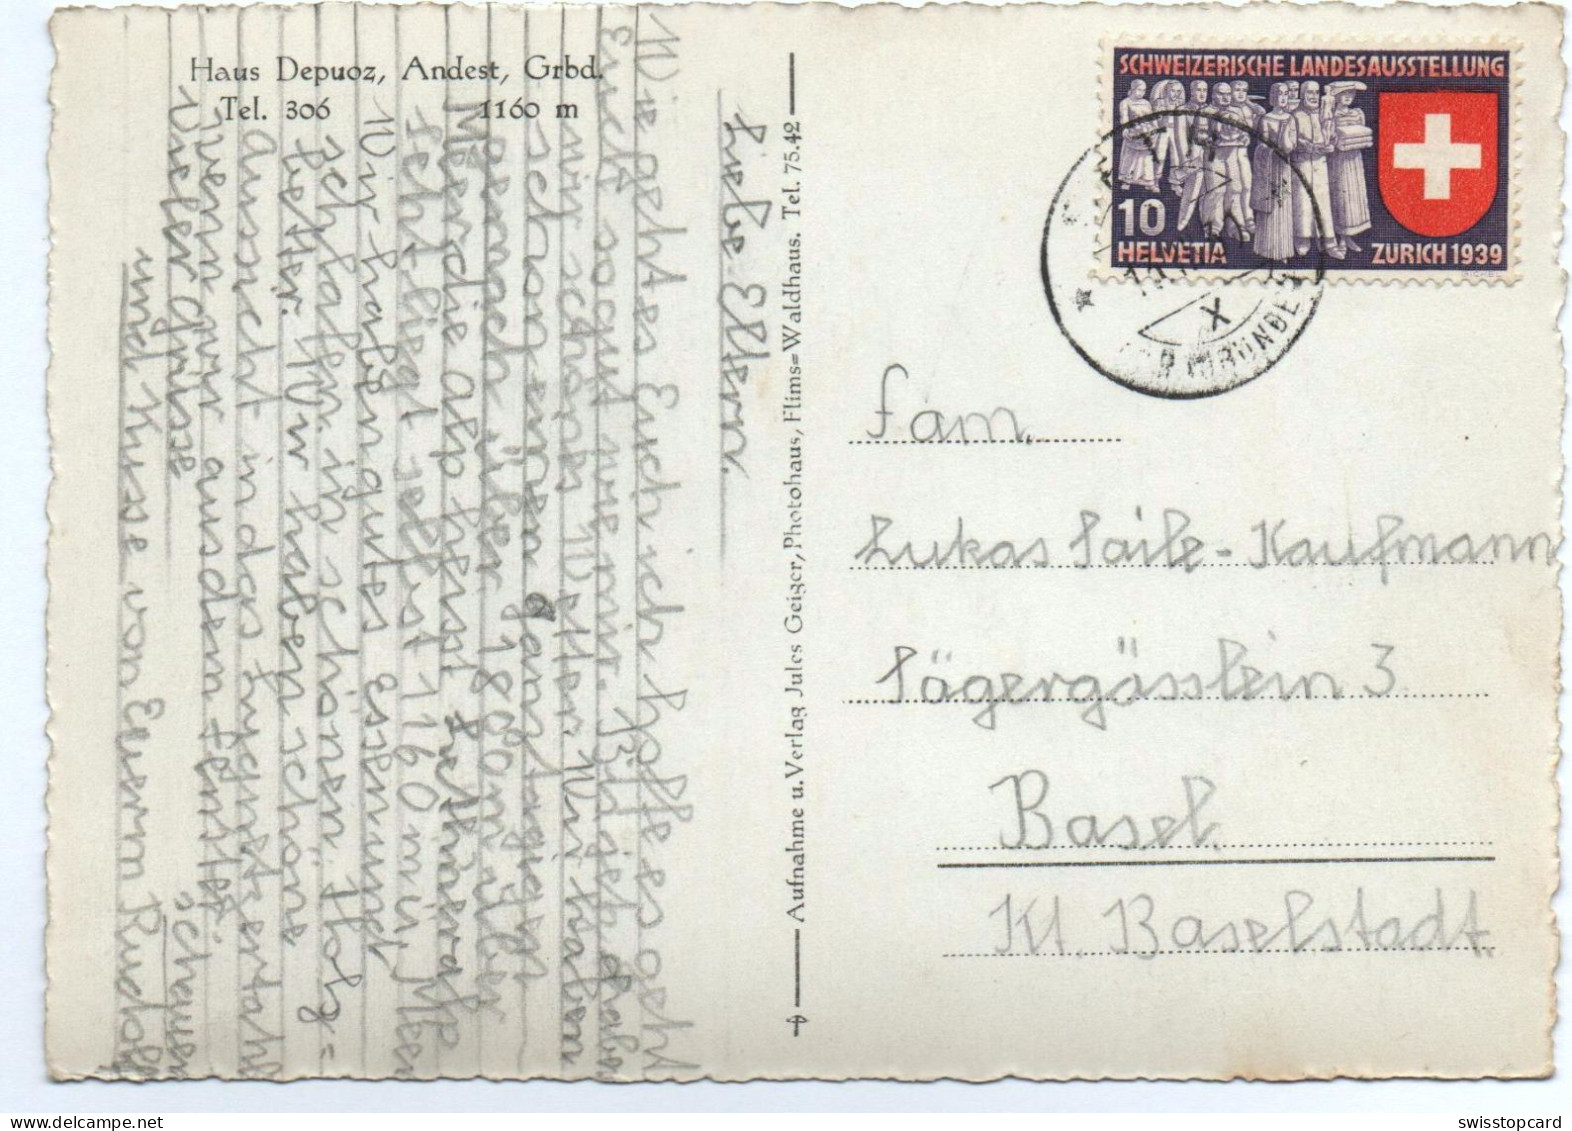 Haus Depuoz, Andest, Grbd.
Tel. 306 1160 m
Liebe Eltern.
Wie geht es Euch ich hoffe es geht
Euch so gut wie mir. Bis jetzt haben
wir schönes Wetter. Wir haben
schon einen ganztagigen
Marsch über 1800 m über
Meer die alp heist
Feht liegt selbst 1160 m ü. Meer
Wir haben gutes Essen und
schlafen in schönen Holz=
better. Wir haben schöne
aussicht in das zugnetzertahl
wenn wir aus dem Fenster schauen
Viele Grüsse
und Küsse von Eurem Rudolf
Aufnahme u. Verlag Jules Geiger, Photohaus, Flims=Waldhaus. Tel. 75.42
SCHWEIZERISCHE LANDESAUSSTELLUNG
10
HELVETIA ZURICH 1939
X
Fam.
Lukas Saile-Kaufmann
Jägergässlein 3
Basel.
Kt. Baselstadt.
swisstopcard